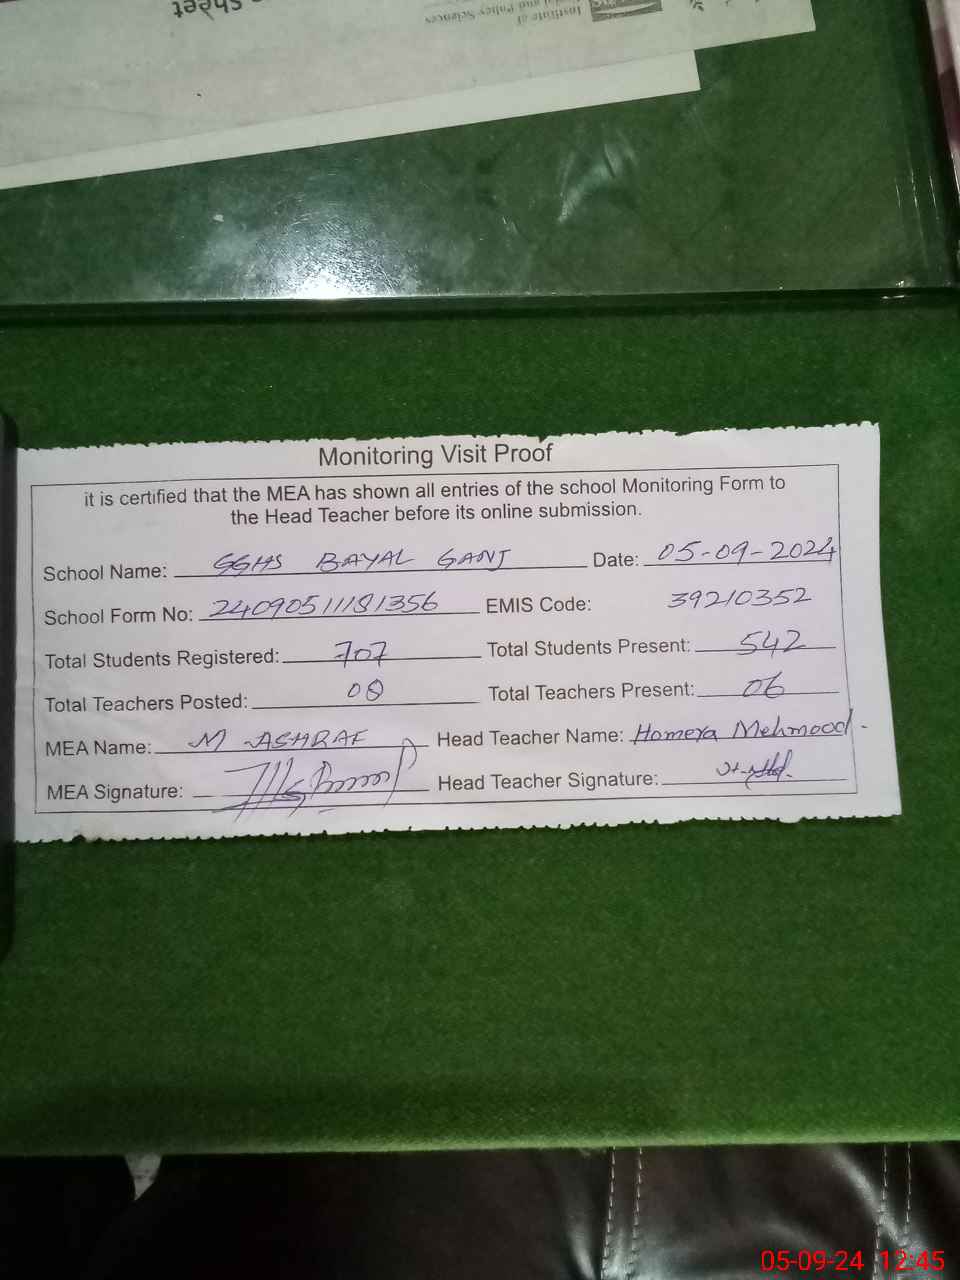 sheet
Institute of
and Policy Sciences
Monitoring Visit Proof
it is certified that the MEA has shown all entries of the school Monitoring Form to
the Head Teacher before its online submission.
School Name: GGHS BAYAL GANJ Date: 05-09-2024
School Form No: 24090511181356 EMIS Code: 39210352
Total Students Registered: 707 Total Students Present: 542
Total Teachers Posted: 08 Total Teachers Present: 06
MEA Name: M ASHRAF Head Teacher Name: Homera Mehmood.
MEA Signature: Head Teacher Signature:
05-09-24 12:45